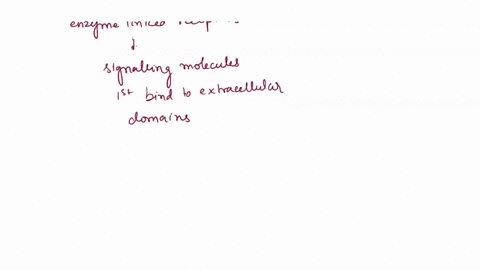 enzyme linked
↓
signalling molecules
1st bind to extracellular
domains